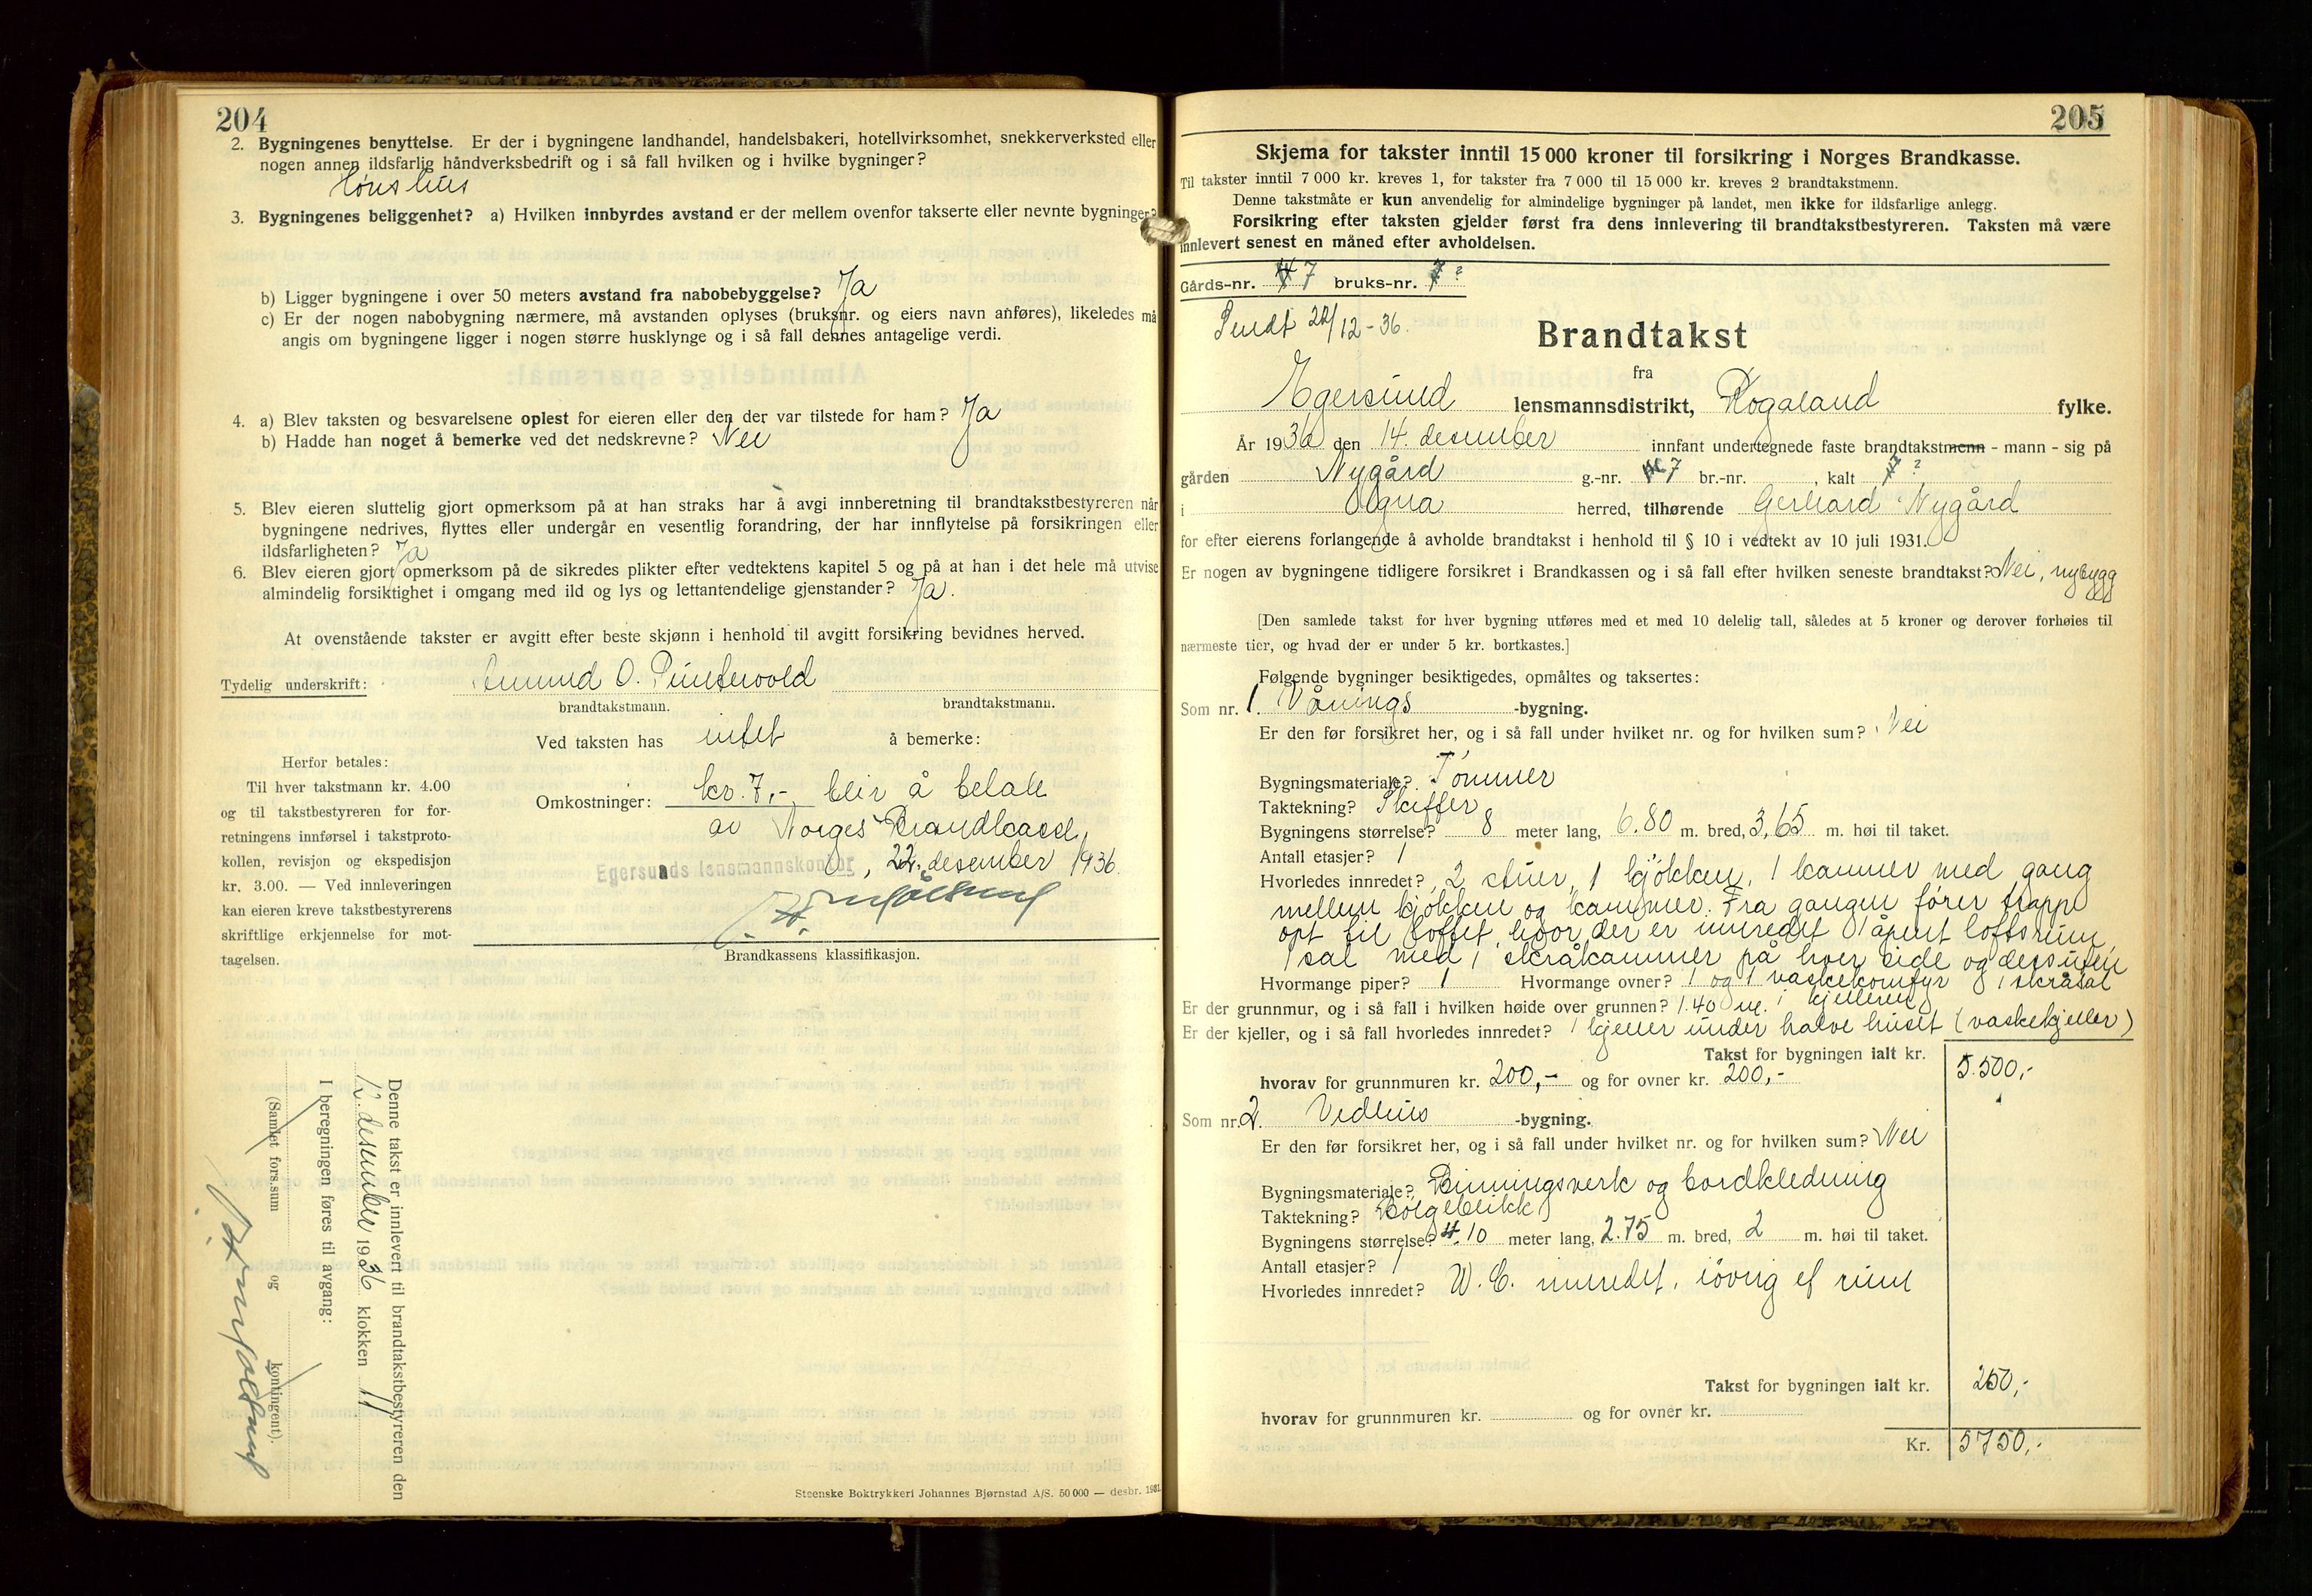 204
2. Bygningenes benyttelse. Er der i bygningene landhandel, handelsbakeri, hotellvirksomhet, snekkerverksted eller
nogen annen ildsfarlig håndverksbedrift og i så fall hvilken og i hvilke bygninger?
Hønshus
3. Bygningenes beliggenhet? a) Hvilken innbyrdes avstand er der mellem ovenfor takserte eller nevnte bygninger?
b) Ligger bygningene i over 50 meters avstand fra nabobebyggelse? Ja
c) Er der nogen nabobygning nærmere, må avstanden oplyses (bruksnr. og eiers navn anføres), likeledes må
angis om bygningene ligger i nogen større husklynge og i så fall dennes antagelige verdi.
4. a) Blev taksten og besvarelsene oplest for eieren eller den der var tilstede for ham? Ja
b) Hadde han noget å bemerke ved det nedskrevne? Nei
5. Blev eieren sluttelig gjort opmerksom på at han straks har å avgi innberetning til brandtakstbestyreren når
bygningene nedrives, flyttes eller undergår en vesentlig forandring, der har innflytelse på forsikringen eller
ildsfarligheten? Ja
6. Blev eieren gjort opmerksom på de sikredes plikter efter vedtektens kapitel 5 og på at han i det hele må utvise
almindelig forsiktighet i omgang med ild og lys og lettantendelige gjenstander? Ja.
At ovenstående takster er avgitt efter beste skjønn i henhold til avgitt forsikring bevidnes herved.
Tydelig underskrift: Amund O. Puntervold
brandtakstmann. brandtakstmann.
Ved taksten has intet å bemerke:
Herfor betales:
Til hver takstmann kr. 4.00
og til takstbestyreren for for-
retningens innførsel i takstproto-
kollen, revisjon og ekspedisjon
kr. 3.00. — Ved innleveringen
kan eieren kreve takstbestyrerens
skriftlige erkjennelse for mot-
tagelsen.
Omkostninger: kr. 7,- blir å betale
av Norges Brandkasse,
Egersunds lensmannskontor, 22. desember 1936.
Brandkassens klassifikasjon.
Denne takst er innlevert til brandtakstbestyreren den
12. desember 1936 klokken 11
I beregningen føres til avgang:
(Samlet fors.sum og kontingent).
Steenske Boktrykkeri Johannes Bjørnstad A/S. 50 000 — desbr. 1931.
205
Skjema for takster inntil 15 000 kroner til forsikring i Norges Brandkasse.
Til takster inntil 7 000 kr. kreves 1, for takster fra 7 000 til 15 000 kr. kreves 2 brandtakstmenn.
Denne takstmåte er kun anvendelig for almindelige bygninger på landet, men ikke for ildsfarlige anlegg.
Forsikring efter taksten gjelder først fra dens innlevering til brandtakstbestyreren. Taksten må være
innlevert senest en måned efter avholdelsen.
Gårds-nr. 7 bruks-nr. 7 ?
Sendt 22/12-36.
Brandtakst
fra
Egersund lensmannsdistrikt, Rogaland fylke.
År 1936 den 14. desember innfant undertegnede faste brandtakstmenn - mann - sig på
gården Nygård g.-nr. 7 br.-nr. , kalt ?
i Ogna herred, tilhørende Gerhard Nygård
for efter eierens forlangende å avholde brandtakst i henhold til § 10 i vedtekt av 10 juli 1931.
Er nogen av bygningene tidligere forsikret i Brandkassen og i så fall efter hvilken seneste brandtakst? Nei, nybygg
[Den samlede takst for hver bygning utføres med et med 10 delelig tall, således at 5 kroner og derover forhøies til
nærmeste tier, og hvad der er under 5 kr. bortkastes.]
Følgende bygninger besiktigedes, opmåltes og taksertes:
Som nr. 1. Vånings -bygning.
Er den før forsikret her, og i så fall under hvilket nr. og for hvilken sum? Nei
Bygningsmateriale? Tømmer
Taktekning? Skiffer
Bygningens størrelse? 8 meter lang, 6.80 m. bred, 3,65 m. høi til taket.
Antall etasjer? 1
Hvorledes innredet? 2 stuer, 1 kjøkken, 1 kammer med gang
mellem kjøkken og kammer. Fra gangen fører trapp
opt til loftet, hvor der er innredet 1 åpent loftsrum,
1 sal med 1 skråkammer på hver side og dessuten
1 skråsal
Hvormange piper? 1 Hvormange ovner? 1 og 1 vaskekomfyr i kjelleren
Er der grunnmur, og i så fall i hvilken høide over grunnen? 1.40 m.
Er der kjeller, og i så fall hvorledes innredet? 1 kjeller under halve huset (vaskekjeller)
Takst for bygningen ialt kr. 5.500,-
hvorav for grunnmuren kr. 200,- og for ovner kr. 200,-
Som nr. 2. Vedhus -bygning.
Er den før forsikret her, og i så fall under hvilket nr. og for hvilken sum? Nei
Bygningsmateriale? Binningsverk og bordkledning
Taktekning? Bølgeblikk
Bygningens størrelse? 4.10 meter lang, 2.75 m. bred, 2 m. høi til taket.
Antall etasjer? 1
Hvorledes innredet? W.C. innredet, iøvrig et rum
Takst for bygningen ialt kr. 250,-
hvorav for grunnmuren kr. og for ovner kr.
Kr. 5750,-